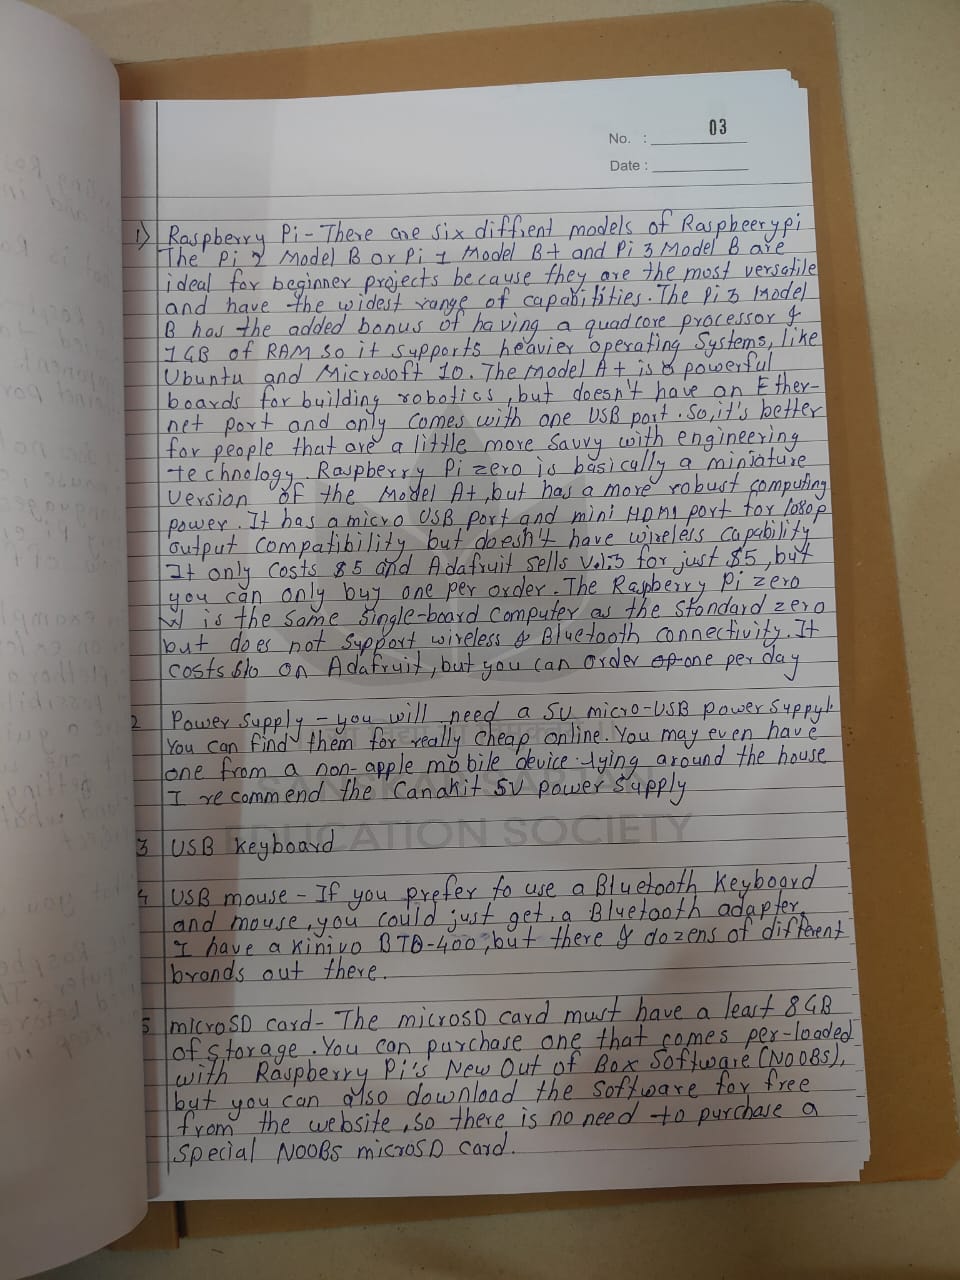 No. : 03
Date :
1) Raspberry Pi - There are six diffrent models of Raspbeerypi
The Pi 2 Model B or Pi 1 Model B+ and Pi 3 Model B are
ideal for beginner projects because they are the most versatile
and have the widest range of capabilities. The Pi 3 Model
B has the added bonus of having a quadcore processor &
1GB of RAM so it supports heavier operating systems, like
Ubuntu and Microsoft 10. The model A+ is powerful
boards for building robotics, but doesn't have an Ether-
net port and only comes with one USB port. So, it's better
for people that are a little more savvy with engineering
technology. Raspberry Pi zero is basically a miniature
version of the Model A+, but has a more robust computing
power. It has a micro USB port and mini HDMI port for 1080p
output compatibility but doesn't have wirelers capability
It only costs $5 and Adafruit sells V1.3 for just $5, but
you can only buy one per order. The Rapberry Pi zero
W is the same single-board computer as the standard zero
but does not support wireless & Bluetooth connectivity. It
costs $10 on Adafruit, but you can order one per day
2 Power supply - you will need a 5V micro-USB power suppyl.
You can find them for really cheap online. You may even have
one from a non-apple mobile device lying around the house
I recommend the Canakit 5V power supply
SANSKAR SARJAN
EDUCATION SOCIETY
3 USB keyboard
4 USB mouse - If you prefer to use a Bluetooth keyboard
and mouse, you could just get a Bluetooth adapter.
I have a Kinivo BTD-400, but there & dozens of different
brands out there.
5 microSD card - The microSD card must have a least 8GB
of storage. You can purchase one that comes per-loaded
with Raspberry Pi's New Out of Box Software (NOOBS),
but you can also download the software for free
from the website, so there is no need to purchase a
special NOOBS microSD card.